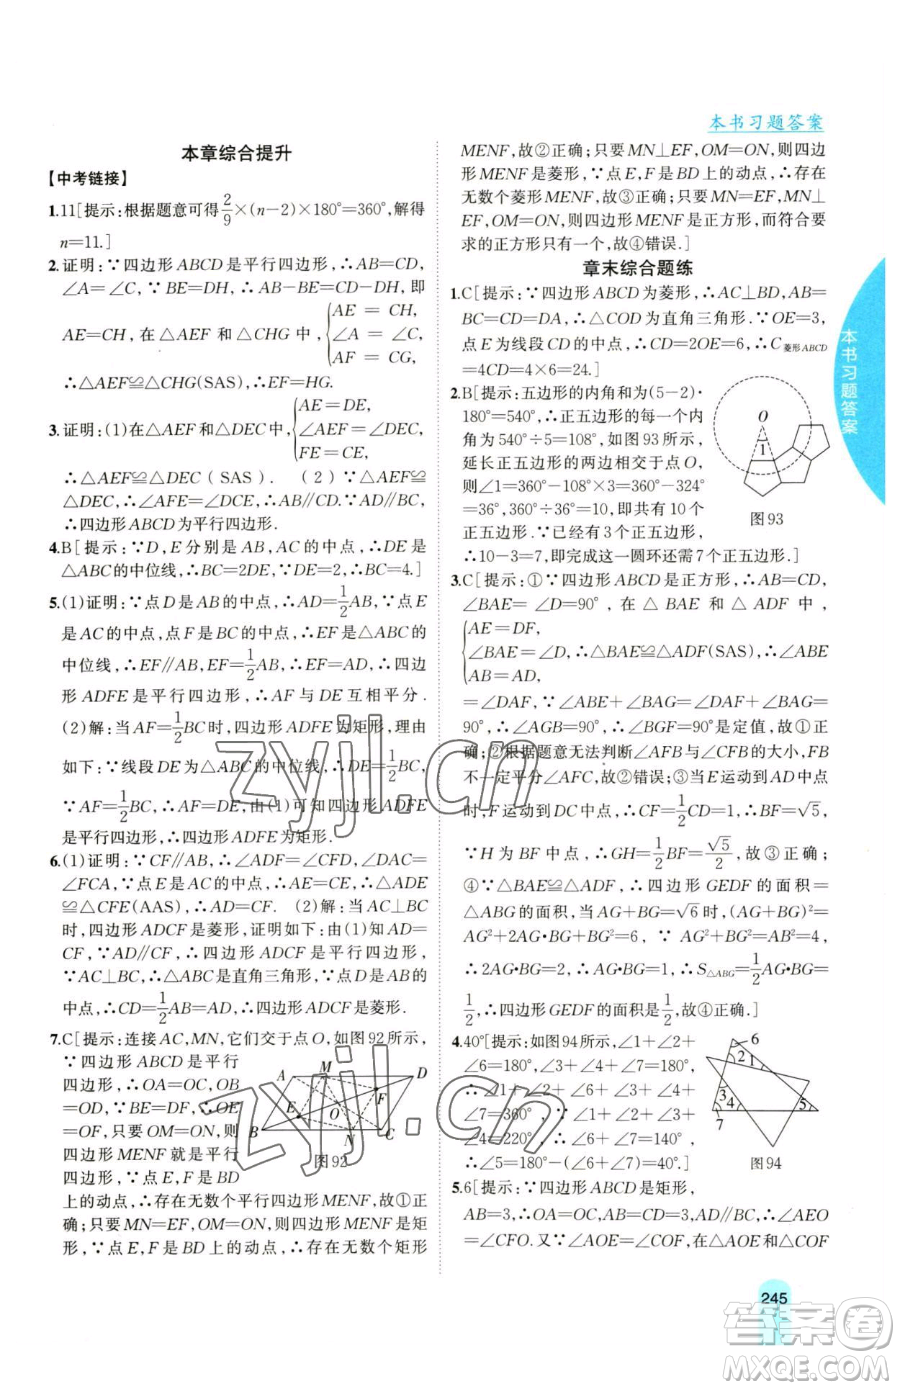 本书习题答案
本章综合提升
【中考链接】
1.11[提示:根据题意可得2/9×(n-2)×180°=360°,解得
n=11.]
2.证明:∵四边形ABCD是平行四边形,∴AB=CD,
∠A=∠C,∵BE=DH,∴AB-BE=CD-DH,即
AE=CH,在△AEF和△CHG中,{AE=CH,
∠A=∠C,
AF=CG,
∴△AEF≌△CHG(SAS),∴EF=HG.
3.证明:(1)在△AEF和△DEC中,{AE=DE,
∠AEF=∠DEC,
FE=CE,
∴△AEF≌△DEC(SAS). (2)∵△AEF≌
△DEC,∴∠AFE=∠DCE,∴AB∥CD.∵AD∥BC,
∴四边形ABCD为平行四边形.
4.B[提示:∵D,E分别是AB,AC的中点,∴DE是
△ABC的中位线,∵DE=2,∴BC=4.]
5.(1)证明:∵点D是AB的中点,∴AD=1/2AB,∵点E
是AC的中点,点F是BC的中点,∴EF是△ABC的
中位线,∴EF∥AB,EF=1/2AB,∴EF=AD,∴四边
形ADFE是平行四边形,∴AF与DE互相平分.
(2)解:当AF=1/2BC时,四边形ADFE为矩形,理由
如下:∵线段DE为△ABC的中位线,∴DE=1/2BC,
∵AF=1/2BC,∴AF=DE,由(1)可知四边形ADFE
是平行四边形,∴四边形ADFE为矩形.
6.(1)证明:∵CF∥AB,∴∠ADF=∠CFD,∠DAC=
∠FCA,∵点E是AC的中点,∴AE=CE,∴△ADE
≌△CFE(AAS),∴AD=CF. (2)解:当AC⊥BC
时,四边形ADCF是菱形,证明如下:由(1)知AD=
CF,∵AD∥CF,∴四边形ADCF是平行四边形,
∵AC⊥BC,∴△ABC是直角三角形,∵点D是AB的
中点,∴CD=1/2AB=AD,∴四边形ADCF是菱形.
7.C[提示:连接AC,MN,它们交于点O,如图92所示,
∵四边形ABCD是平行
四边形,∴OA=OC,OB=
OD,∵BE=DF,∴OE
=OF,只要OM=ON,四
边形MENF就是平行
四边形,∵点E,F是BD
A M D
F
E O
B N C
图92
上的动点,∴存在无数个平行四边形MENF,故①正
确;只要MN=EF,OM=ON,则四边形MENF是矩
形,∵点E,F是BD上的动点,∴存在无数个矩形
MENF,故②正确;只要MN⊥EF,OM=ON,则四边
形MENF是菱形,∵点E,F是BD上的动点,∴存在
无数个菱形MENF,故③正确;只要MN=EF,MN⊥
EF,OM=ON,则四边形MENF是正方形,而符合要
求的正方形只有一个,故④错误.]
章末综合题练
1.C[提示:∵四边形ABCD为菱形,∴AC⊥BD,AB=
BC=CD=DA,∴△COD为直角三角形.∵OE=3,
点E为线段CD的中点,∴CD=2OE=6,∴C菱形ABCD
=4CD=4×6=24.]
2.B[提示:五边形的内角和为(5-2)·
180°=540°,∴正五边形的每一个内
角为540°÷5=108°,如图93所示,
延长正五边形的两边相交于点O,
则∠1=360°-108°×3=360°-324°
=36°,360°÷36°=10,∵已经有3个
正五边形,∴10-3=7,即完成这一圆环还需7个正五边形.]
O
1
图93
3.C[提示:①∵四边形ABCD是正方形,∴AB=AD,
∠BAE=∠D=90°,在△BAE和△ADF中,
{AE=DF,
∠BAE=∠D,∴△BAE≌△ADF(SAS),∴∠ABE
AB=AD,
=∠DAF,∵∠ABE+∠BAG=∠DAF+∠BAG=
90°,∴∠AGB=90°,∴∠BGF=90°是定值,故①正
确;②根据题意无法判断∠AFB与∠CFB的大小,FB
不一定平分∠AFC,故②错误;③当E运动到AD中点
时,F运动到DC中点,∴CF=1/2CD=1,∴BF=√5,
∵H为BF中点,∴GH=1/2BF=√5/2,故③正确;
④∵△BAE≌△ADF,∴四边形GEDF的面积=
△ABG的面积,当AG+BG=√6时,(AG+BG)²=
AG²+2AG·BG+BG²=6,∵AG²+BG²=AB²=4,
∴2AG·BG=2,∴AG·BG=1,∴S△ABG=1/2AG·BG=
1/2,∴四边形GEDF的面积是1/2,故④正确.]
4.40°[提示:如图94所示,∠1+∠2+
∠6=180°,∠3+∠4+∠7=180°,
∴∠1+∠2+∠6+∠3+∠4+
∠7=360°,∵∠1+∠2+∠3+
∠4=220°,∴∠6+∠7=140°,
∴∠5=180°-(∠6+∠7)=40°.]
6
2 1
3 4 5
7
图94
5.6[提示:∵四边形ABCD是矩形,
AB=3,∴OA=OC,AB=CD=3,AD∥BC,∴∠AEO
=∠CFO.又∵∠AOE=∠COF,在△AOE和△COF
本书习题答案
245
zyjl.cn
zyjl.cn
答案圈
MXQE.COM